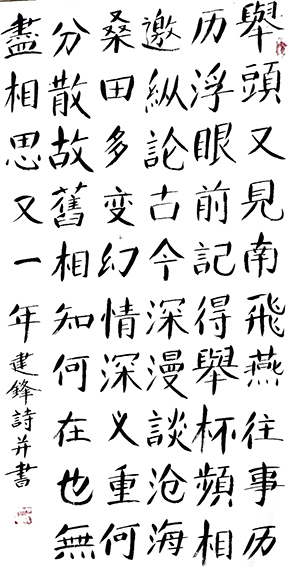 舉頭又見南飛燕往事历
历浮眼前記得舉杯頻相
邀縱論古今深漫談沧海
桑田多变幻情深义重何
分散故舊相知何在也無
盡相思又一年
建鋒詩并書